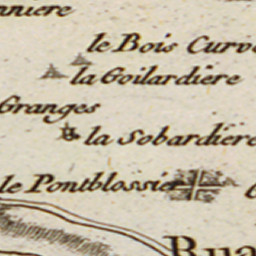 nniere
le Bois Curv
la Goilardiere
Granges
la Sobardiere
le Pontblossier
Rua